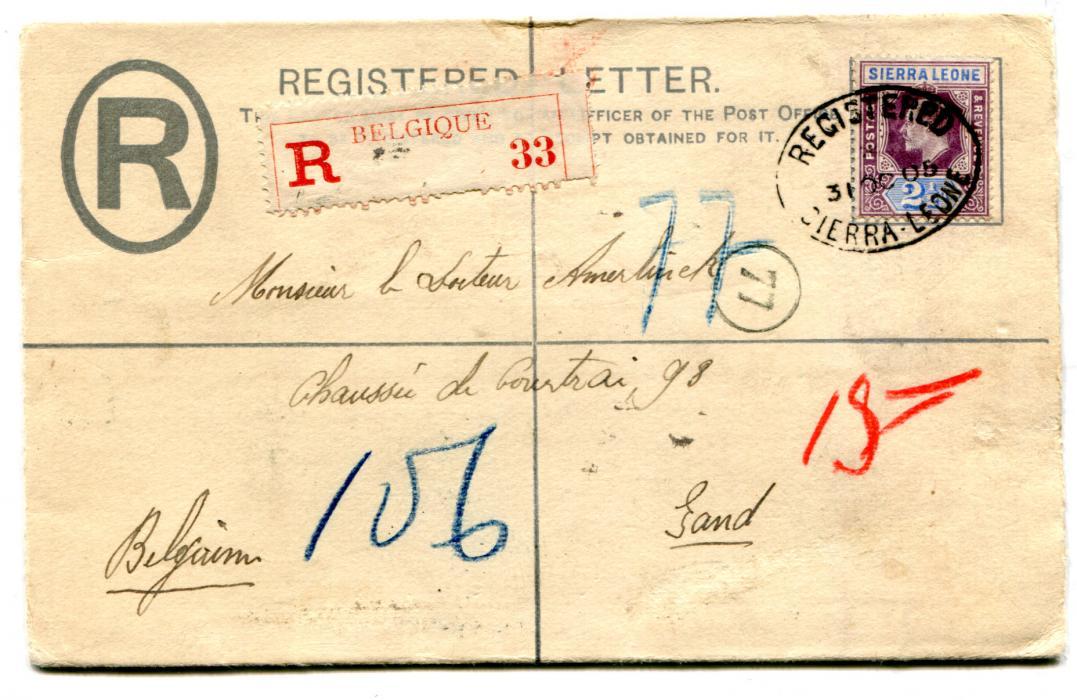 R
REGISTERED LETTER.
TH FFICER OF THE POST OFF
PT OBTAINED FOR IT.
BELGIQUE
R 33
SIERRA LEONE
POSTA & REVEN
2½
REGISTERED
31 05
SIERRA-LEONE
77
77
Monsieur le Docteur Amerlinck
Chaussée de Courtrai, 98
Gand
Belgium
106